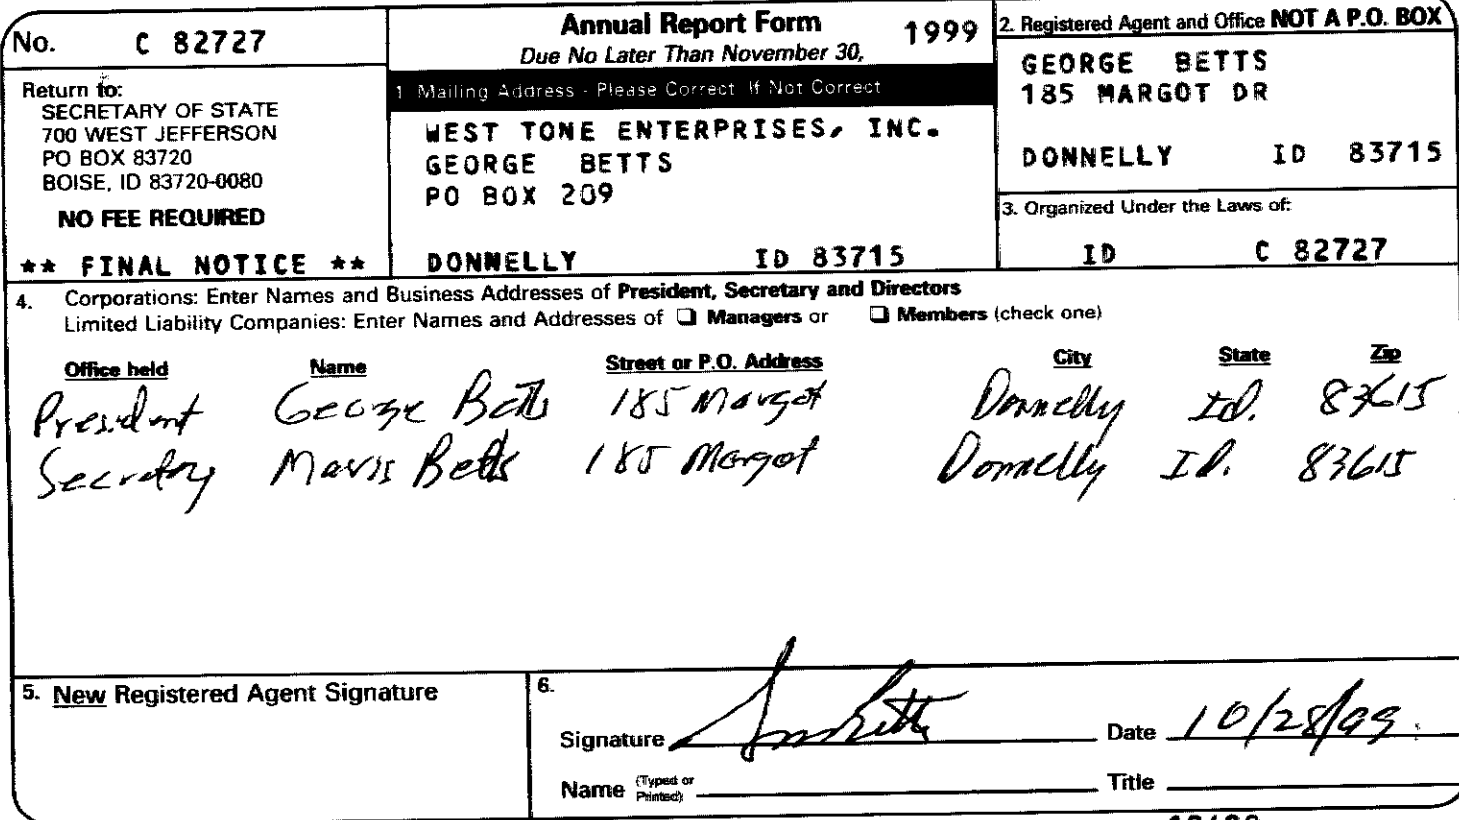 No. C 82727
Return to:
SECRETARY OF STATE
700 WEST JEFFERSON
PO BOX 83720
BOISE, ID 83720-0080
NO FEE REQUIRED
** FINAL NOTICE **
Annual Report Form 1999
Due No Later Than November 30,
1 Mailing Address - Please Correct If Not Correct
WEST TONE ENTERPRISES, INC.
GEORGE BETTS
PO BOX 209
DONNELLY ID 83715
2. Registered Agent and Office NOT A P.O. BOX
GEORGE BETTS
185 MARGOT DR
DONNELLY ID 83715
3. Organized Under the Laws of:
ID C 82727
4. Corporations: Enter Names and Business Addresses of President, Secretary and Directors
Limited Liability Companies: Enter Names and Addresses of ❑ Managers or ❑ Members (check one)
Office held Name Street or P.O. Address City State Zip
President George Betts 185 Margot Donnelly Id. 83615
Secretry Mavis Betts 185 Margot Donnelly Id. 83615
5. New Registered Agent Signature
6.
Signature Date 10/28/99
Name (Typed or Printed) Title